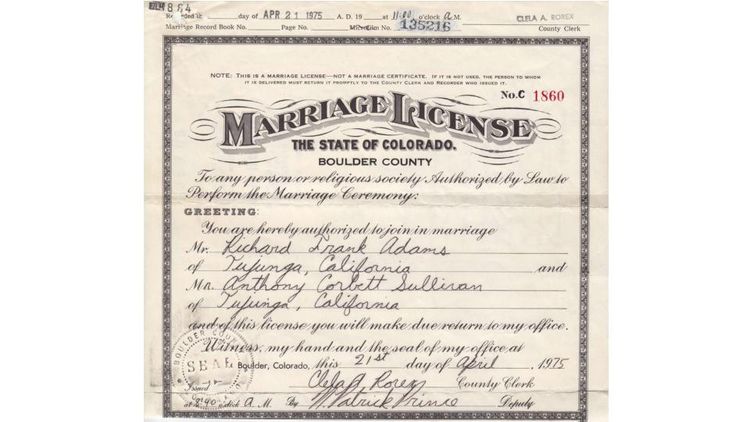 Recorded at day of APR 21 1975 A. D. 19 at 11:00 o'clock A M. CLELA A. ROREX
Marriage Record Book No. Page No. 135216 County Clerk
NOTE: THIS IS A MARRIAGE LICENSE—NOT A MARRIAGE CERTIFICATE. IF IT IS NOT USED, THE PERSON TO WHOM
IT IS DELIVERED MUST RETURN IT PROMPTLY TO THE COUNTY CLERK AND RECORDER WHO ISSUED IT.
No. C 1860
MARRIAGE LICENSE
THE STATE OF COLORADO.
BOULDER COUNTY
To any person or religious society Authorized by Law to
Perform the Marriage Ceremony:
GREETING:
You are hereby authorized to join in marriage
Mr. Richard Frank Adams
of Tujunga, California and
Mr. Anthony Corbett Sullivan
of Tujunga, California
and of this license you will make due return to my office.
Witness, my hand and the seal of my office at
Boulder, Colorado, this 21st day of April 1975
BOULDER COUNTY
SEAL
Clela A Rorex County Clerk
Issued
at 8:40 o'clock A. M. By Patrick Prince Deputy